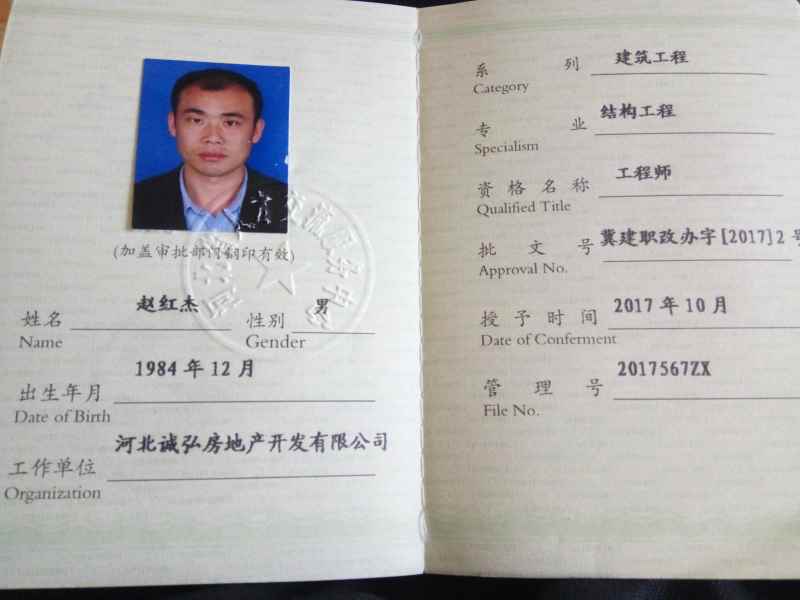 (加盖审批部门钢印有效)
姓名 赵红杰 性别 男
Name Gender
出生年月 1984年12月
Date of Birth
工作单位 河北诚弘房地产开发有限公司
Organization
系列 建筑工程
Category
专业 结构工程
Specialism
资格名称 工程师
Qualified Title
批文号 冀建职改办字[2017]2号
Approval No.
授予时间 2017年10月
Date of Conferment
管理号 2017567ZX
File No.